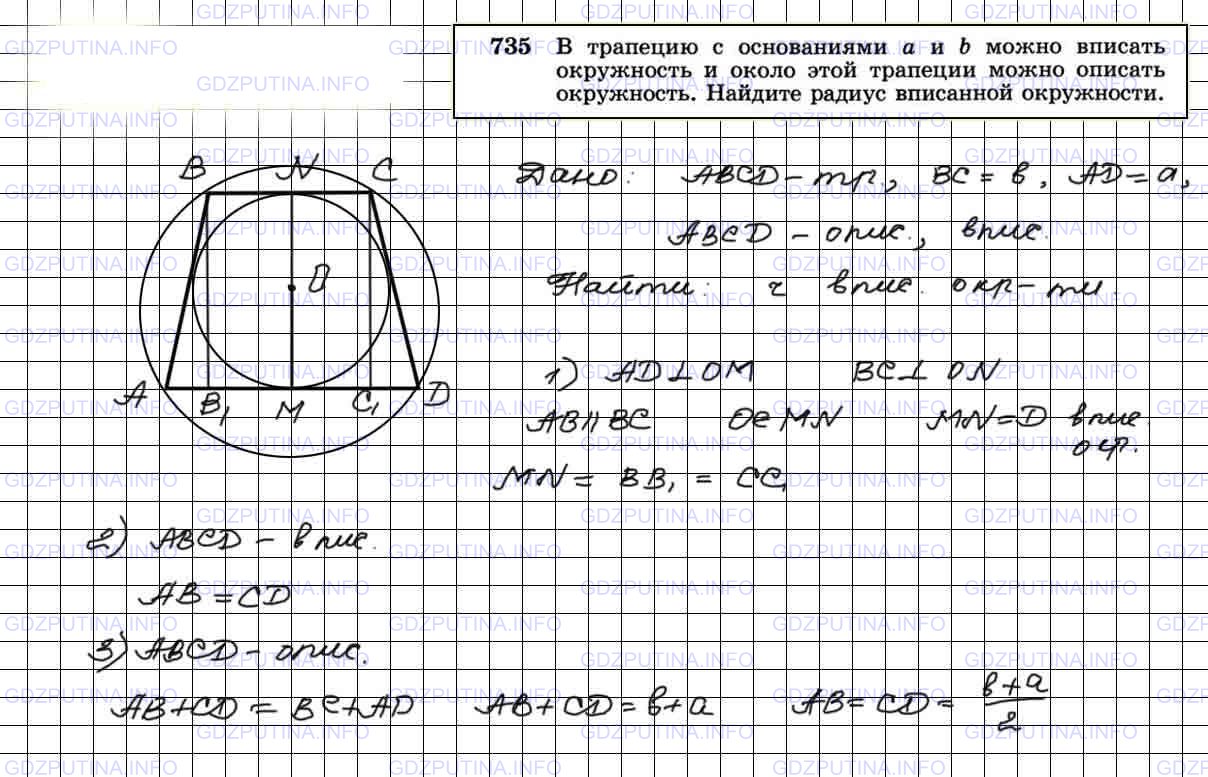 735 В трапецию с основаниями a и b можно вписать
окружность и около этой трапеции можно описать
окружность. Найдите радиус вписанной окружности.
B N C
O
A B₁ M C₁ D
Дано: ABCD – тр., BC = в, AD = a,
ABCD – опис., впис.
Найти: r впис. окр-ти.
1) AD ⊥ OM BC ⊥ ON
AB || BC O∈MN MN = D впис.
окр.
MN = BB₁ = CC₁
2) ABCD – впис.
AB = CD
3) ABCD – опис.
AB + CD = BC + AD AB + CD = в + a AB = CD = (в + a)/2
GDZPUTINA.INFO